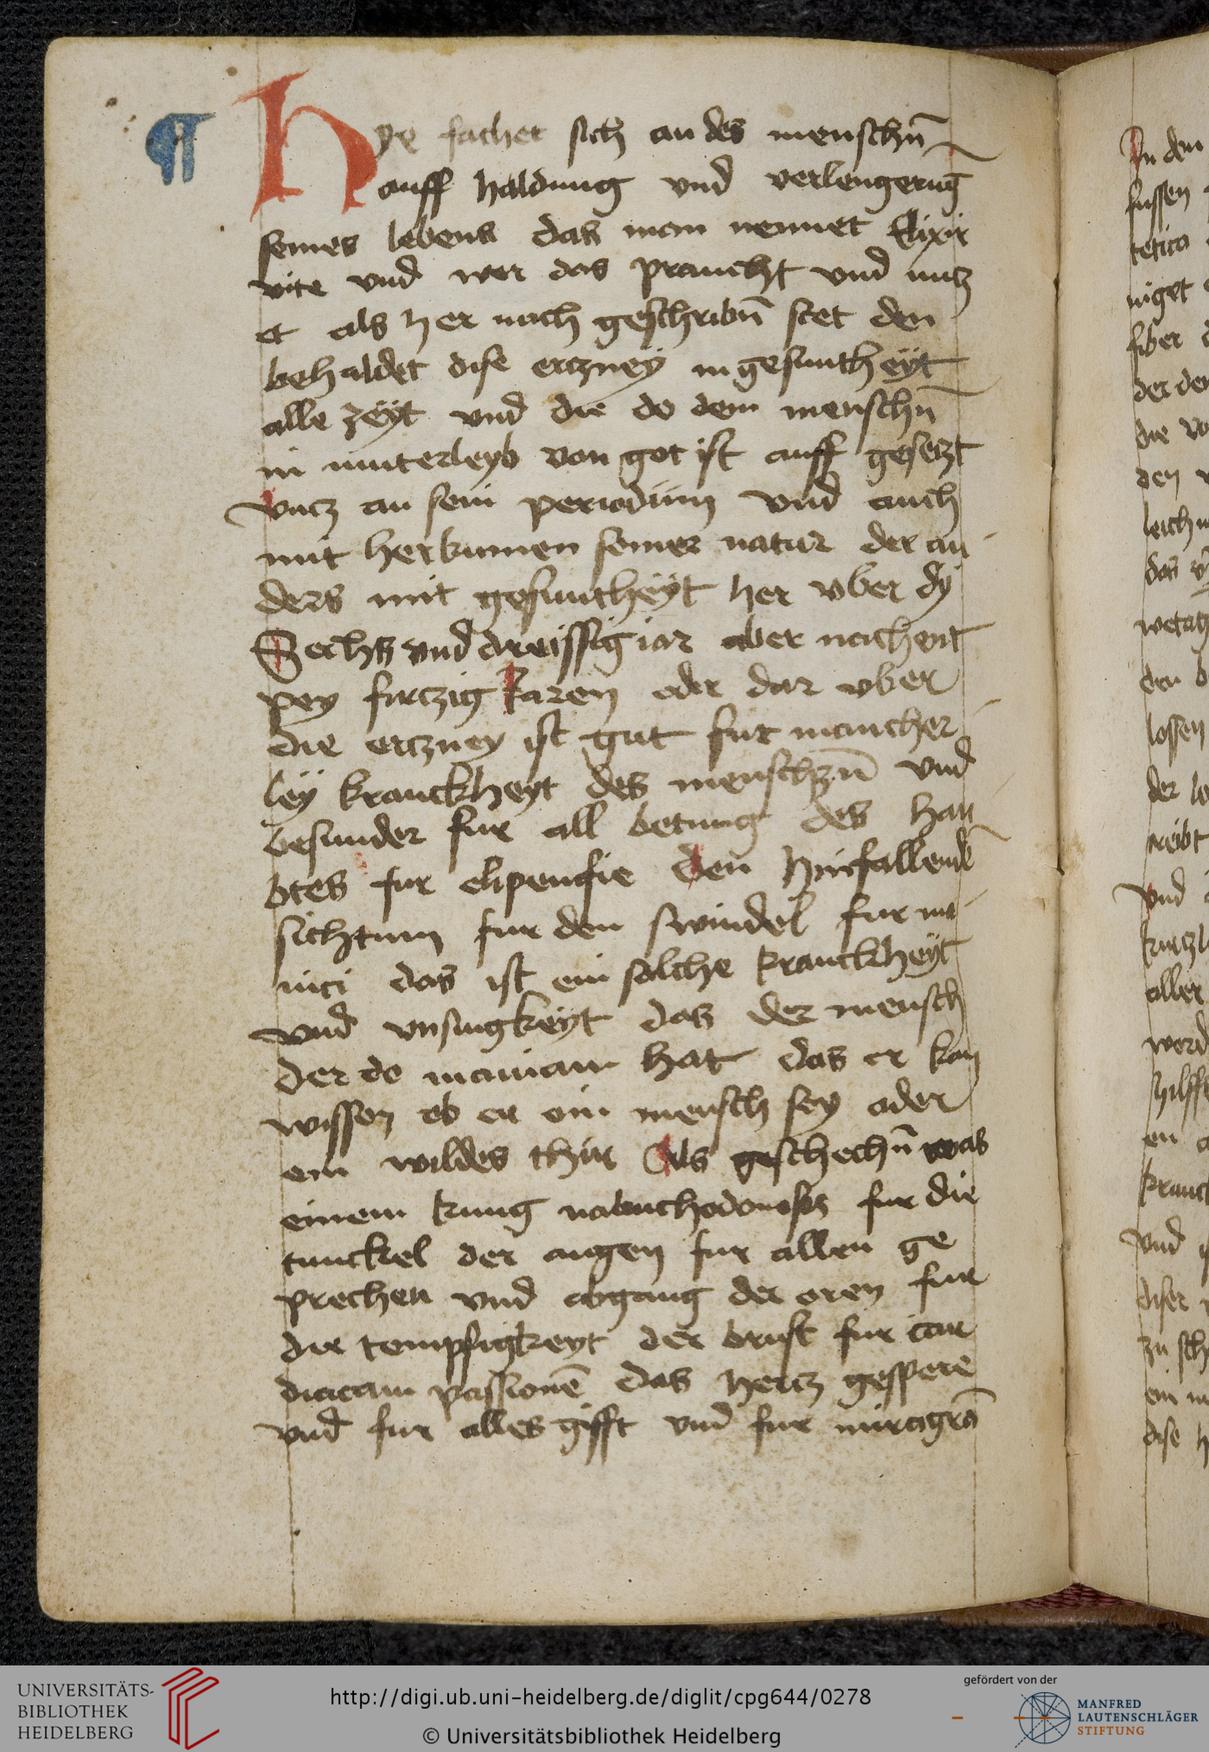 ¶ Hye fachet sich an des menschn̄
auff haldung vnd verlengerūg
seines lebens das man nennet Elixir
vite vnd wer das praucht vnd nucz
et als her nach geschribn̄ stet den
behaldet dise erczney in gesuntheÿt
alle zeÿt vnd die do dem menschn̄
in muterleyb von got ist auff gesetzt
vncz an sein periodum vnd auch
mit herkumen seiner natur der an
ders mit gesuntheÿt her vber dy
Sechs vnd dreissig iar aber nachent
pey firczig Jaren oder dar vber
die erczney ist gut fur mancher
leÿ kranckheyt des menschn̄ vnd
besunder fur all betung des hau
btes fur elipenсie den hinfallendē
sichtum fur den swindel fur ma
nici das ist ein solche kranckheÿt
vnd vnsingkeÿt das der mensch
der do maniam hat das er kan
wissen ob er ein mensch sey oder
ein wildes thir Als geschechn̄ was
einem kung nabuchodonosor fur die
tunckel der augen fur allen ge
prechen vnd abgang der oren fur
die tempfigkeyt der brust fur car
diacam passionē das hercz gespere
vnd fur alles gifft vnd fur migranā
In dem
fussen
tetica
niget
fiber
der de
die vo
den
leich
das
wetag
den
lossen
der le
reibt
vnd
kurczl
aller
werd
hilfft
en
kranck
vnd
diser
zu sch
ein
dise
UNIVERSITÄTS-
BIBLIOTHEK
HEIDELBERG
http://digi.ub.uni-heidelberg.de/diglit/cpg644/0278
© Universitätsbibliothek Heidelberg
gefördert von der
MANFRED
LAUTENSCHLÄGER
STIFTUNG